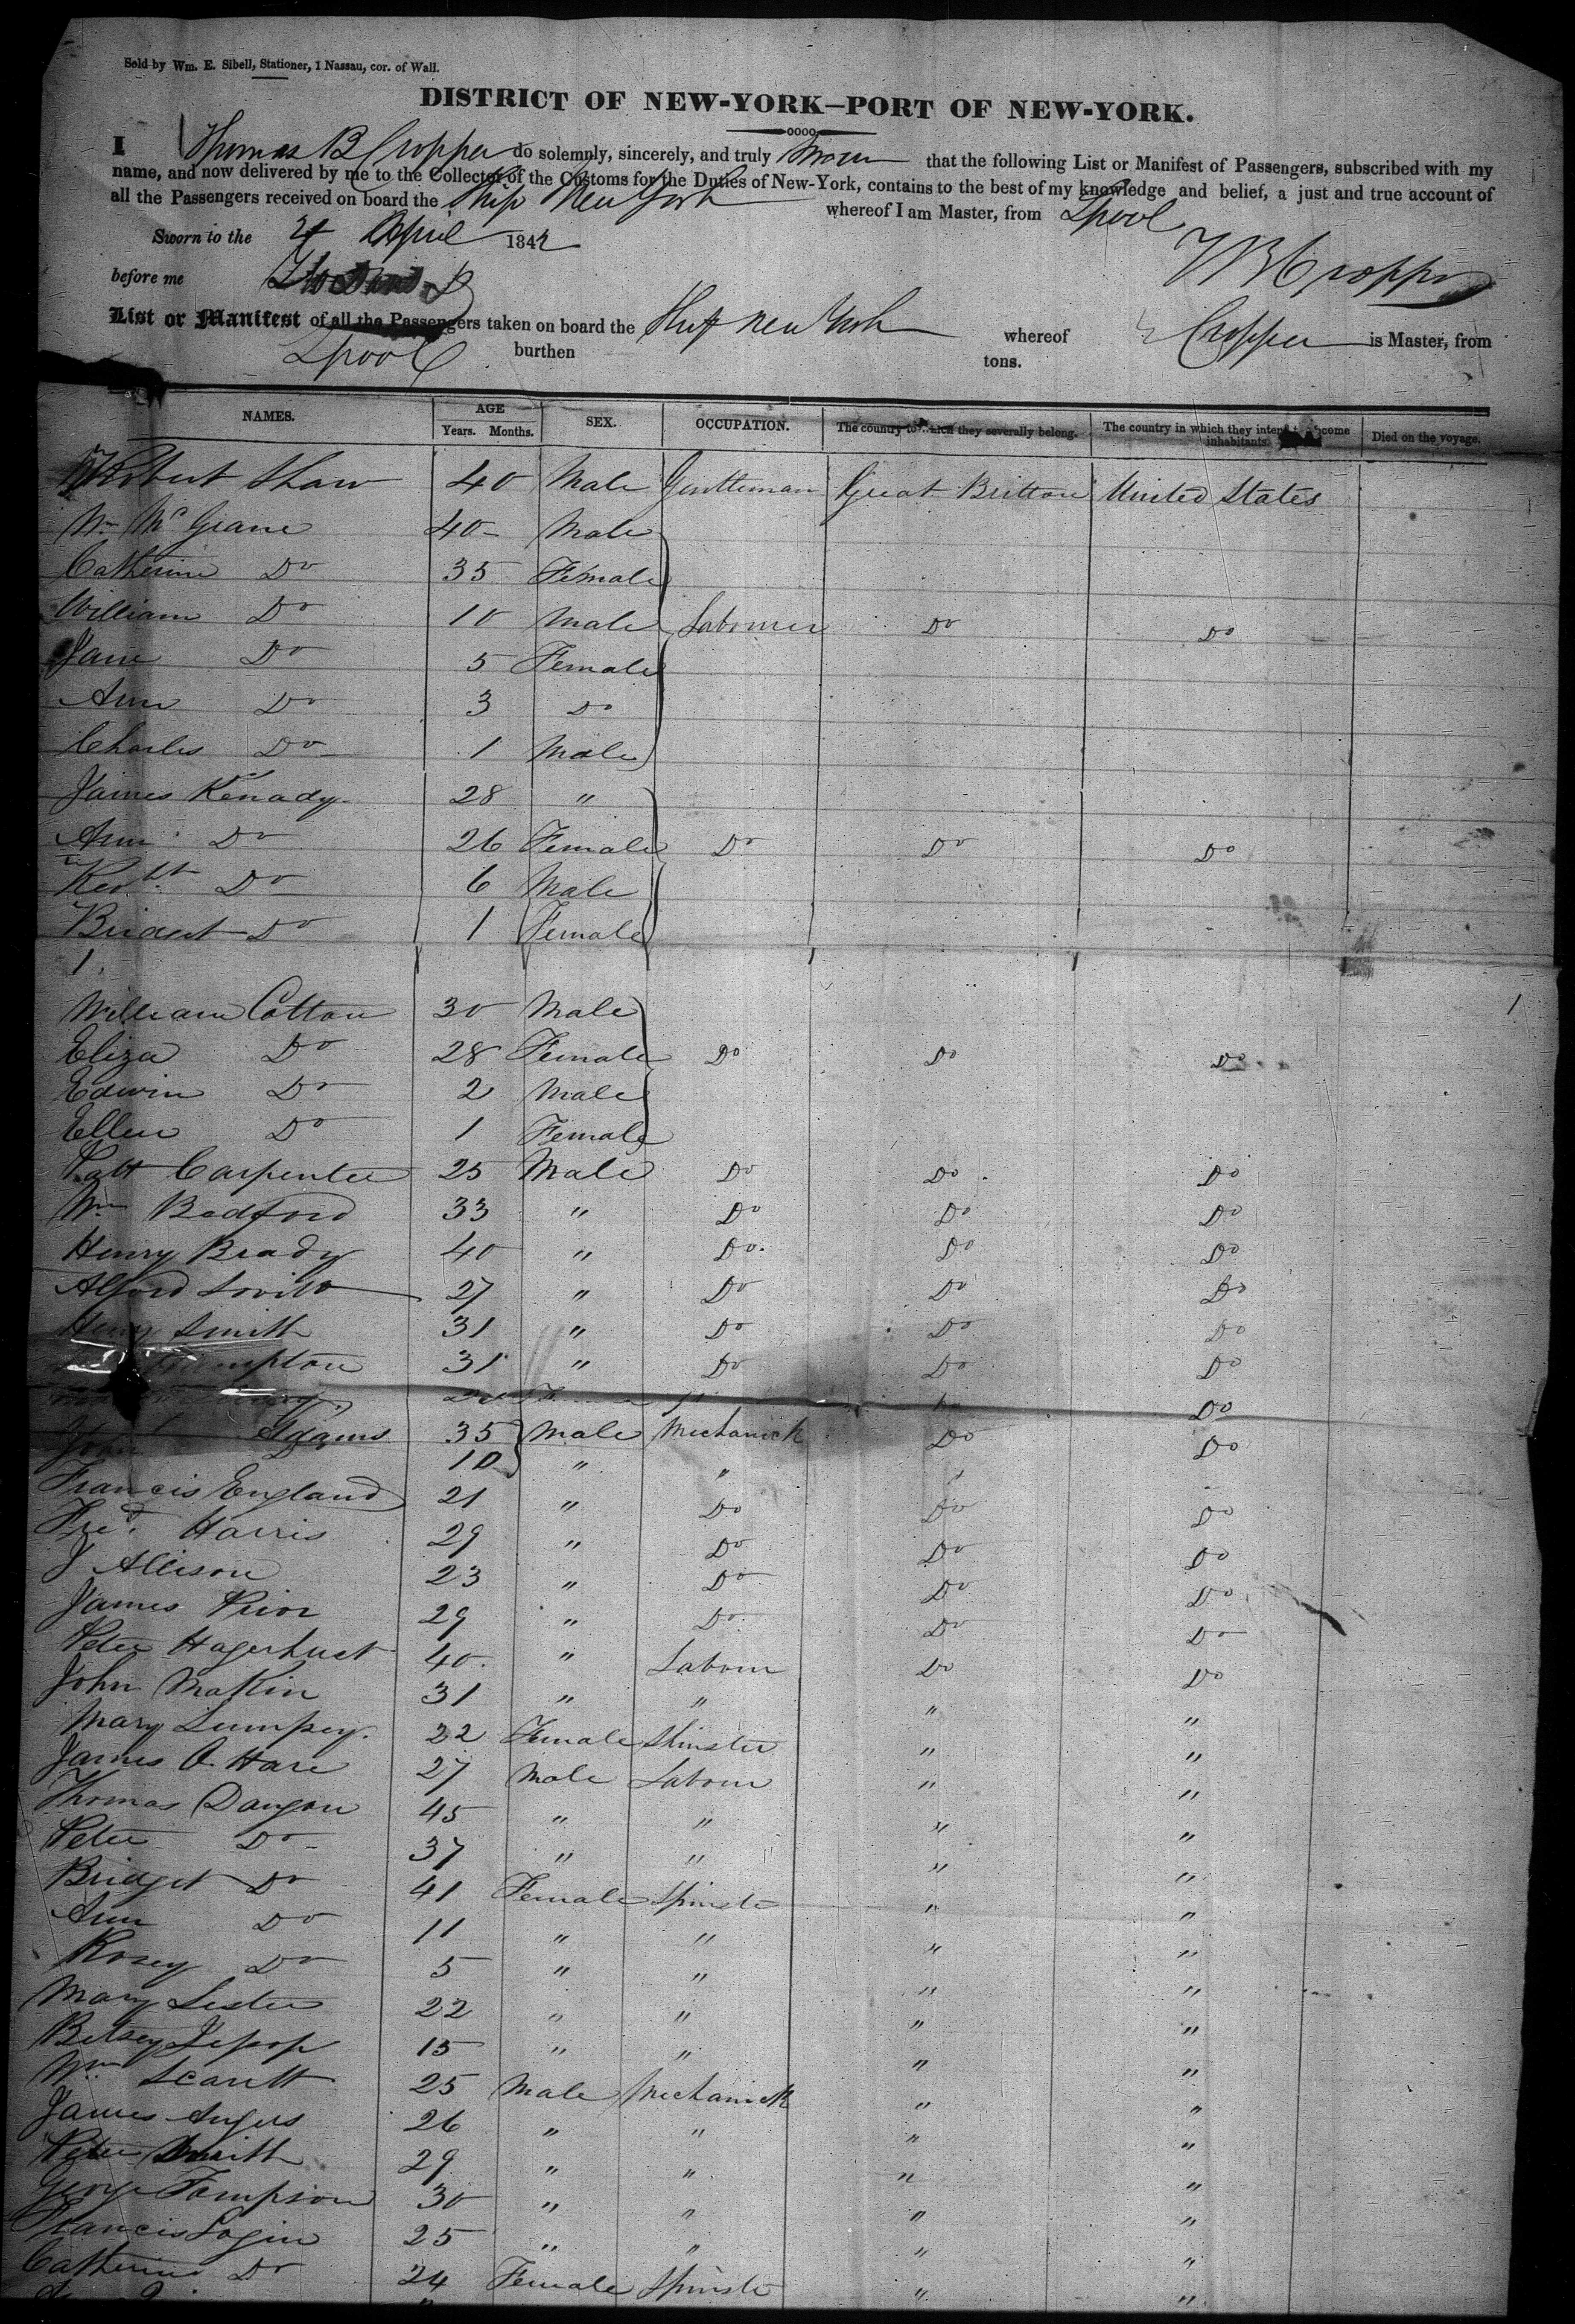 Sold by Wm. E. Sibell, Stationer, 1 Nassau, cor. of Wall.
DISTRICT OF NEW-YORK—PORT OF NEW-YORK.
I Thomas B Cropper do solemnly, sincerely, and truly Swear that the following List or Manifest of Passengers, subscribed with my
name, and now delivered by me to the Collector of the Customs for the Duties of New-York, contains to the best of my knowledge and belief, a just and true account of
all the Passengers received on board the Ship New York whereof I am Master, from Lpool
Sworn to the April 1842
TB Cropper
before me
List or Manifest of all the Passengers taken on board the Ship New York whereof Cropper is Master, from
Lpool burthen tons.
NAMES. AGE Years. Months. SEX. OCCUPATION. The country to which they severally belong. The country in which they intend to become inhabitants. Died on the voyage.
Robert Shaw 40 Male Gentleman Great Britton United States
Wm McGrane 40 Male
Catherine Do 35 Female
William Do 10 Male Labourer Do Do
Jane Do 5 Female
Ann Do 3 Do
Charles Do 1 Male
James Kenady 28 "
Ann Do 26 Female Do Do Do
Do 6 Male
Bridget Do 1 Female
1
William Cotton 30 Male
Eliza Do 28 Female Do Do Do
Edwin Do 2 Male
Ellen Do 1 Female
Patt Carpenter 25 Male Do Do Do
Wm Bedford 33 " Do Do Do
Henry Brady 40 " Do Do Do
Alford 27 " Do Do Do
Henry Smith 31 " Do Do Do
31 " Do Do Do
Do
Adams 35 Male Mechanick Do Do
John 10 " "
Francis England 21 " Do Do Do
Fred. Harris 29 " Do Do Do
J Allison 23 " Do Do Do
James Prior 29 " Do Do Do
Peter Hagerhust 40 " Labour Do Do
John Makin 31 " " " "
Mary Lumpey 22 Female Spinster " "
James O Hare 27 Male Labour " "
Thomas Dangon 45 " " " "
Peter Do 37 " " " "
Bridget Do 41 Female Spinste " "
Ann Do 11 " " " "
Rosey Do 5 " " " "
Mary Lester 22 " " " "
Betsey Jepop 15 " " " "
Wm Scarett 25 Male Mechanick " "
James Angus 26 " " " "
Peter Smith 29 " " " "
George Tompson 30 " " " "
Francis Login 25 " " " "
Catherine Do 24 Female Spinste " "